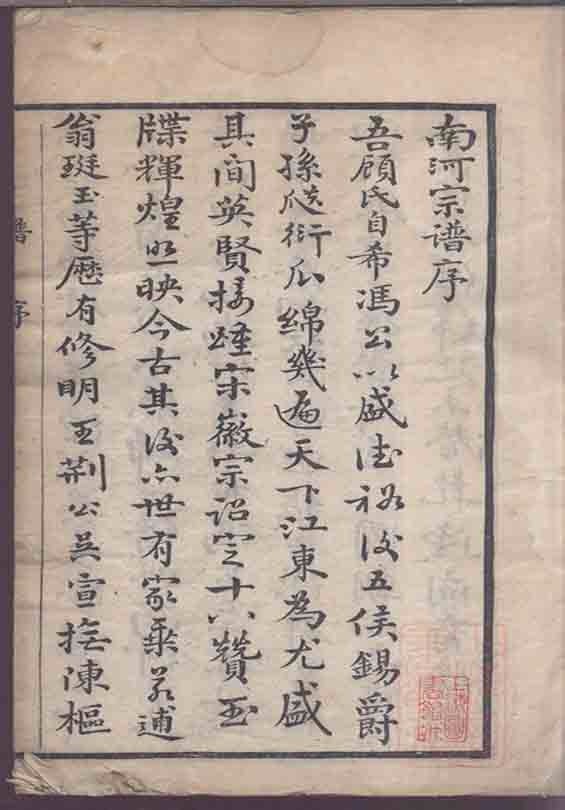 南河宗谱序
吾顧氏自希馮公以盛德裕後五侯錫爵
子孫瓞衍瓜綿幾遍天下江東為尤盛
其间英賢接踵宋徽宗詔定十八贊玉
牒輝煌照映今古其後亦世有家乘若逋
翁珽玉等歷有修明王荆公吳宣撫陳樞
譜序